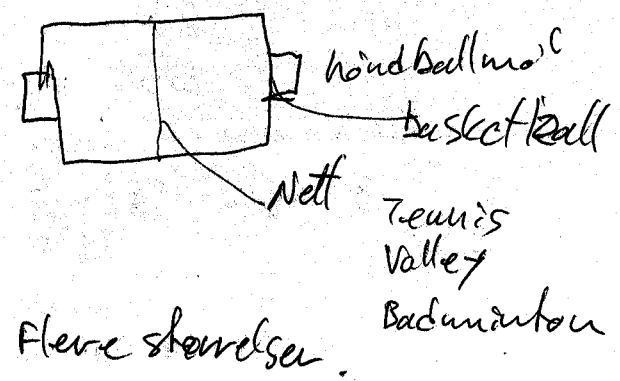 håndballmål
basketball
Nett
Tennis
Valley
Badminton
Flere størrelser.